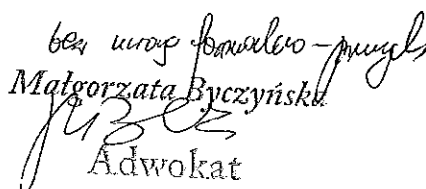 bez uwag formalno-prawnych
Małgorzata Byczyńska
Adwokat